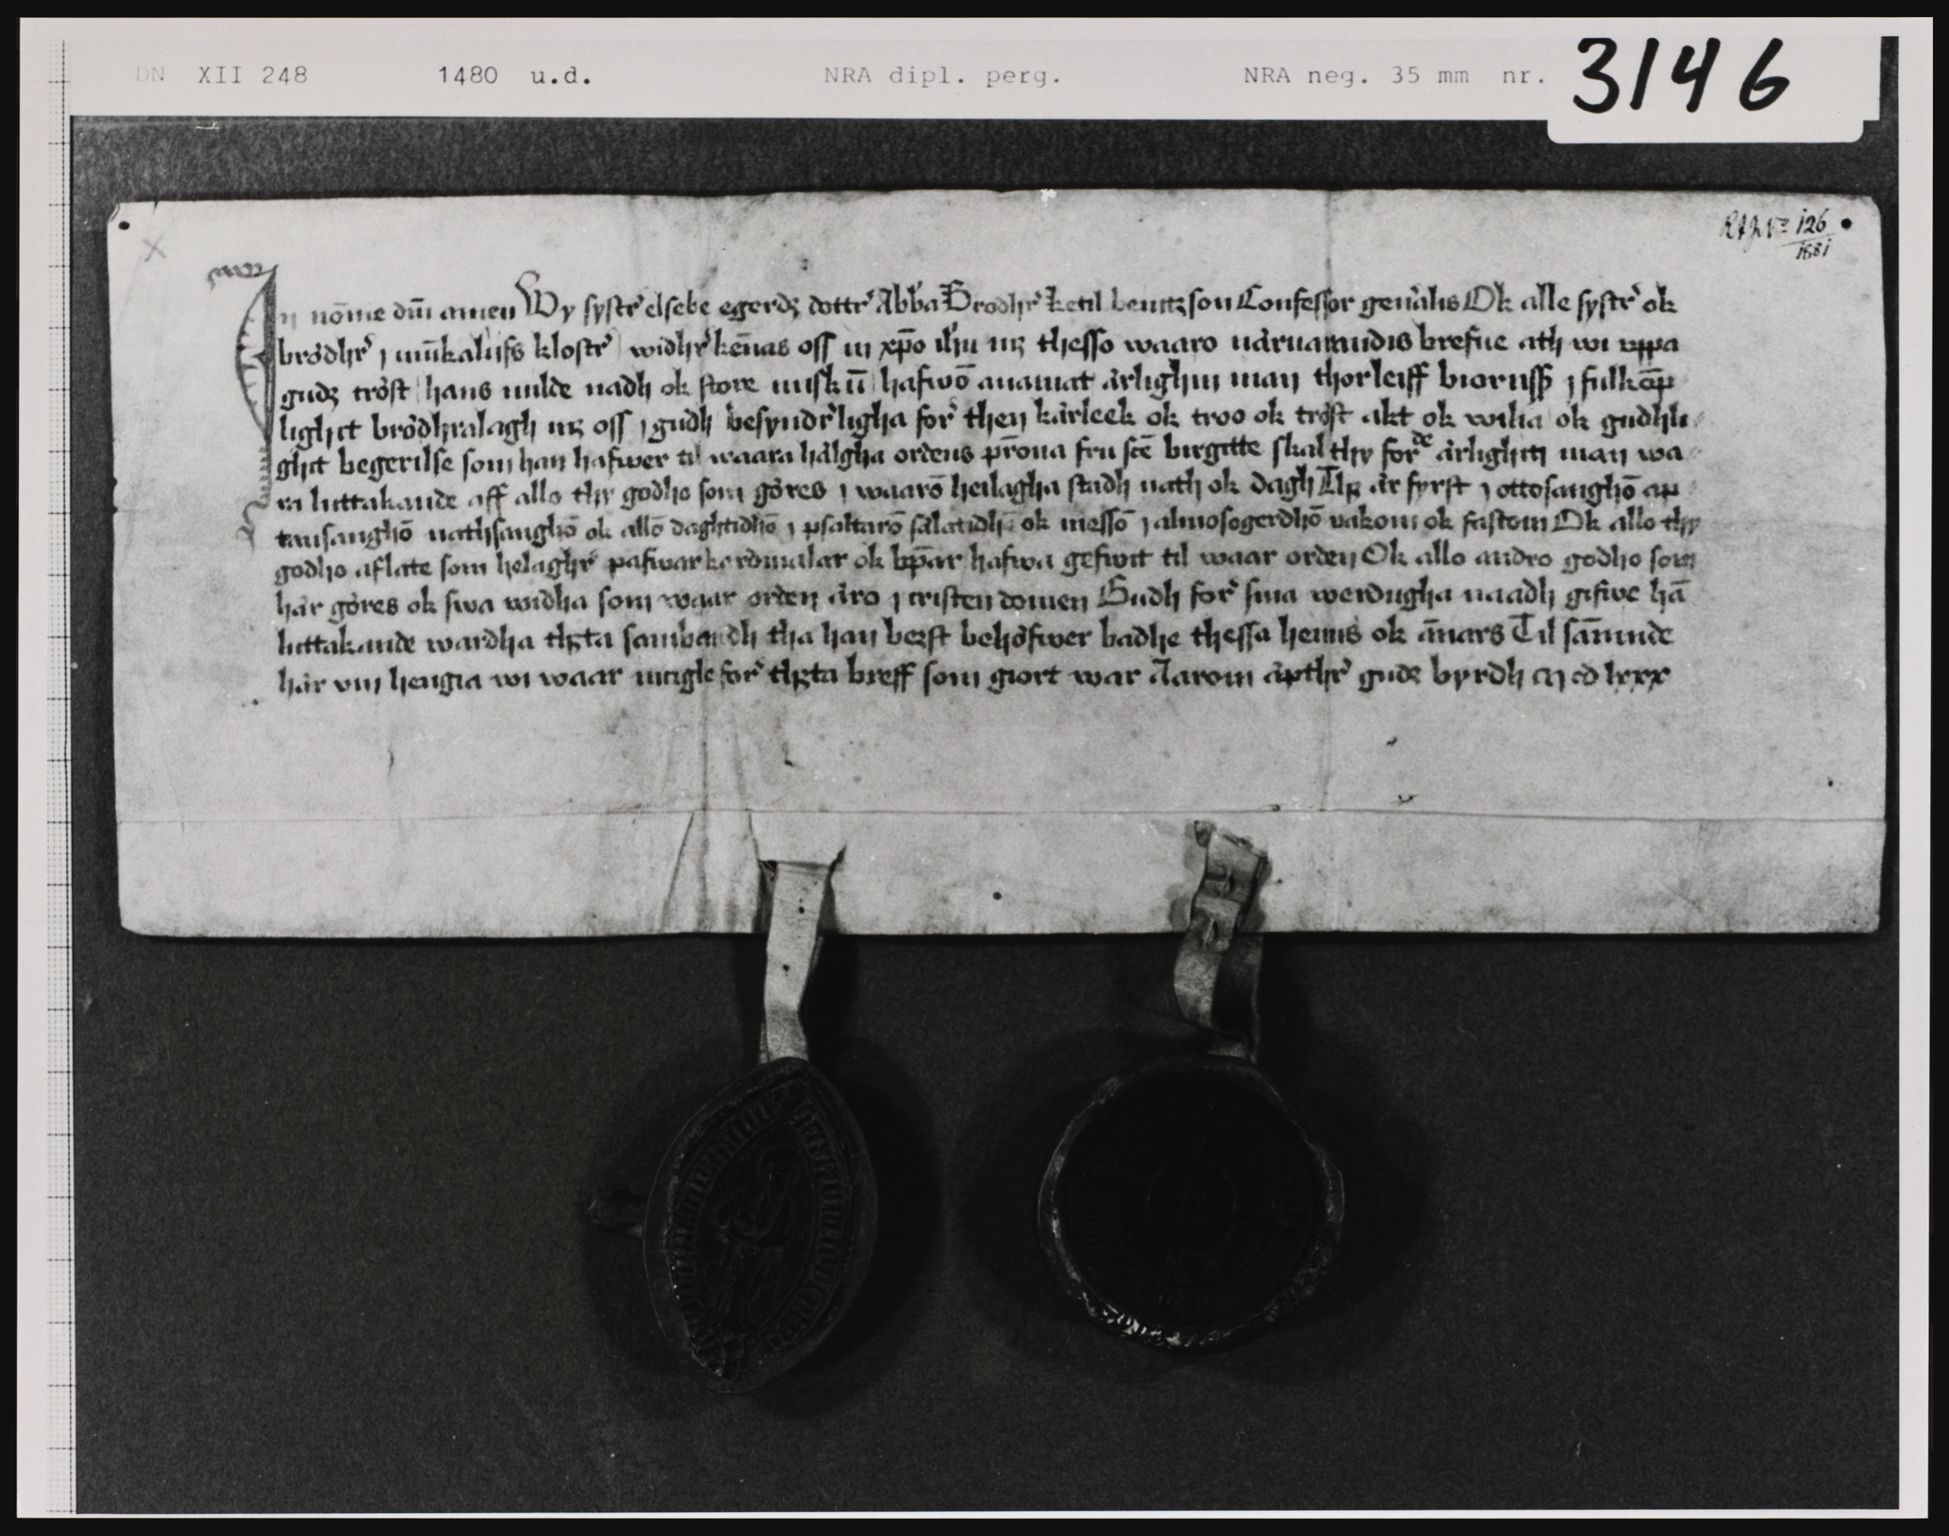 DN XII 248 1480 u.d. NRA dipl. perg. NRA neg. 35 mm nr. 3146
126
1881
In nōīe dnī amen Wy systr̄ elsebe egerdz dottr̄ Abb̄a Brodhr̄ ketil benitzson Confessor gen̄alis Ok alle systr̄ ok
brødhr̄ j mūkaliifs klostr̄ widhr̄ kēnas oss in xp̄o ih̄u mz thesso waaro nāruarandis brefue ath wi vppa
gudz trøst hans milde nadh ok store miskū hafwō anamat ärlighin man thorleiff biornss j fulkōp
lighit brødhralagh mz oss j gudh besyndr̄ligha for̄ then kärleek ok troo ok trøst akt ok wilia ok gudhli
ghit begerilse som han hafwer til waara hälgha ordens p̄rona fru scē birgitte skal thy for̄de ärlighin man wa
ra luttakande aff allo thy godho som gøres j waarō heilagha stadh nath ok dagh är fyrst j ottosanghō ap
tansanghō nathsanghō ok allō daghtidhō j psaltarō ok messō j almosogerdhō vakom ok fastom Ok allo thy
godho aflate som helaghr̄ pafwar kardinalar ok bp̄ar hafwa gefwit til waar orden Ok allo andro godho som
här gøres ok swa widha som waar orden äro j cristendomen Gudh for̄ sina werdugha naadh gifwe hā
luttakande wardha thzta sambandh tha han bezst behøfwer badhe thessa heims ok ānars Til sāninde
här vm hengia wi waar incigle for̄ thzta breff som giort war Aarom äpthr̄ gudz byrdh M cd lxxx